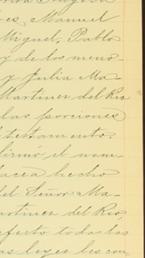 es, Manuel
Miguel, Pablo
y de los meno
y Julia Ma
Martinez del Rio
las porciones
testamento
firmó el nom
hecho
del Señor Ma
artinez del Rio
efecto todas las
as leyes les con